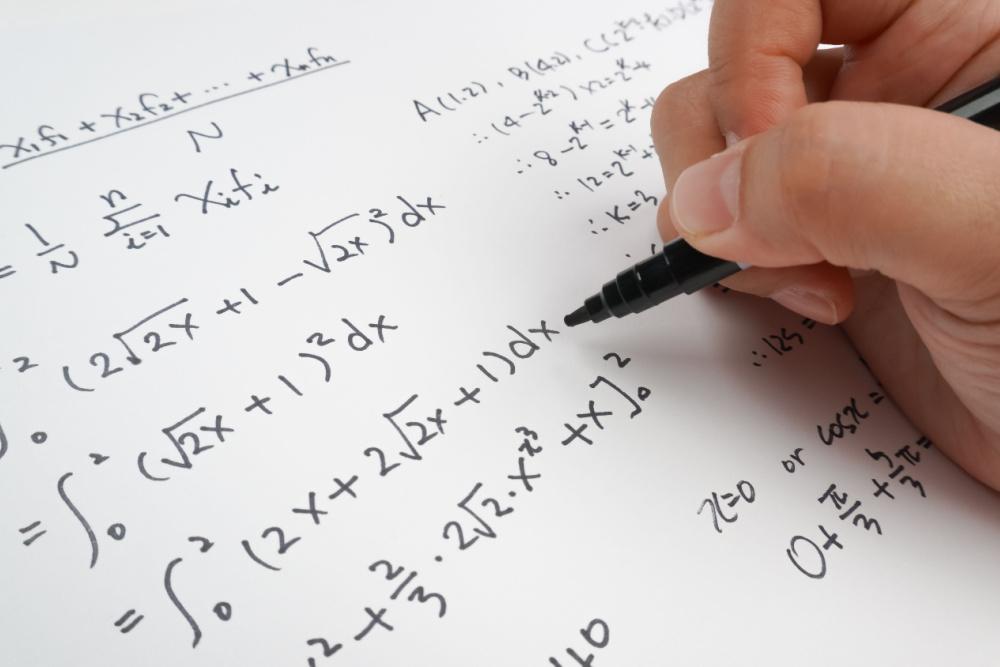 x₁f₁ + x₂f₂ + ... + xₙfₙ / N
= 1/N Σ_{i=1}^{n} xᵢfᵢ
∫₀² (2√2x + 1 - √2x)² dx
= ∫₀² (√2x + 1)² dx
= ∫₀² (2x + 2√2x + 1) dx
² + 2/3 · 2√2 · x^{} + x]₀²
+0
A(1.2), B(4.2), C(
∴ (4 - 2^{k-2}) × 2 = 2^k - 4
∴ 8 - 2^{k-1} = 2^k
∴ 12 = 2^{k-1} +
∴ k = 3
∴ 125 =
x=0 or cosx =
0 + π/3 + 5/3 π =